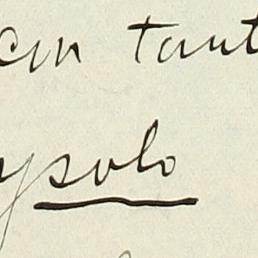 con tant
y solo